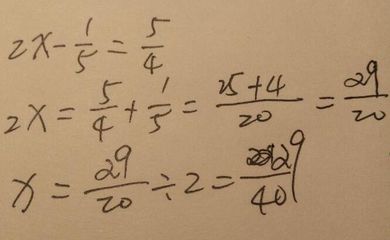 2x - 1/5 = 5/4
2x = 5/4 + 1/5 = (25+4)/20 = 29/20
x = 29/20 ÷ 2 = 29/40